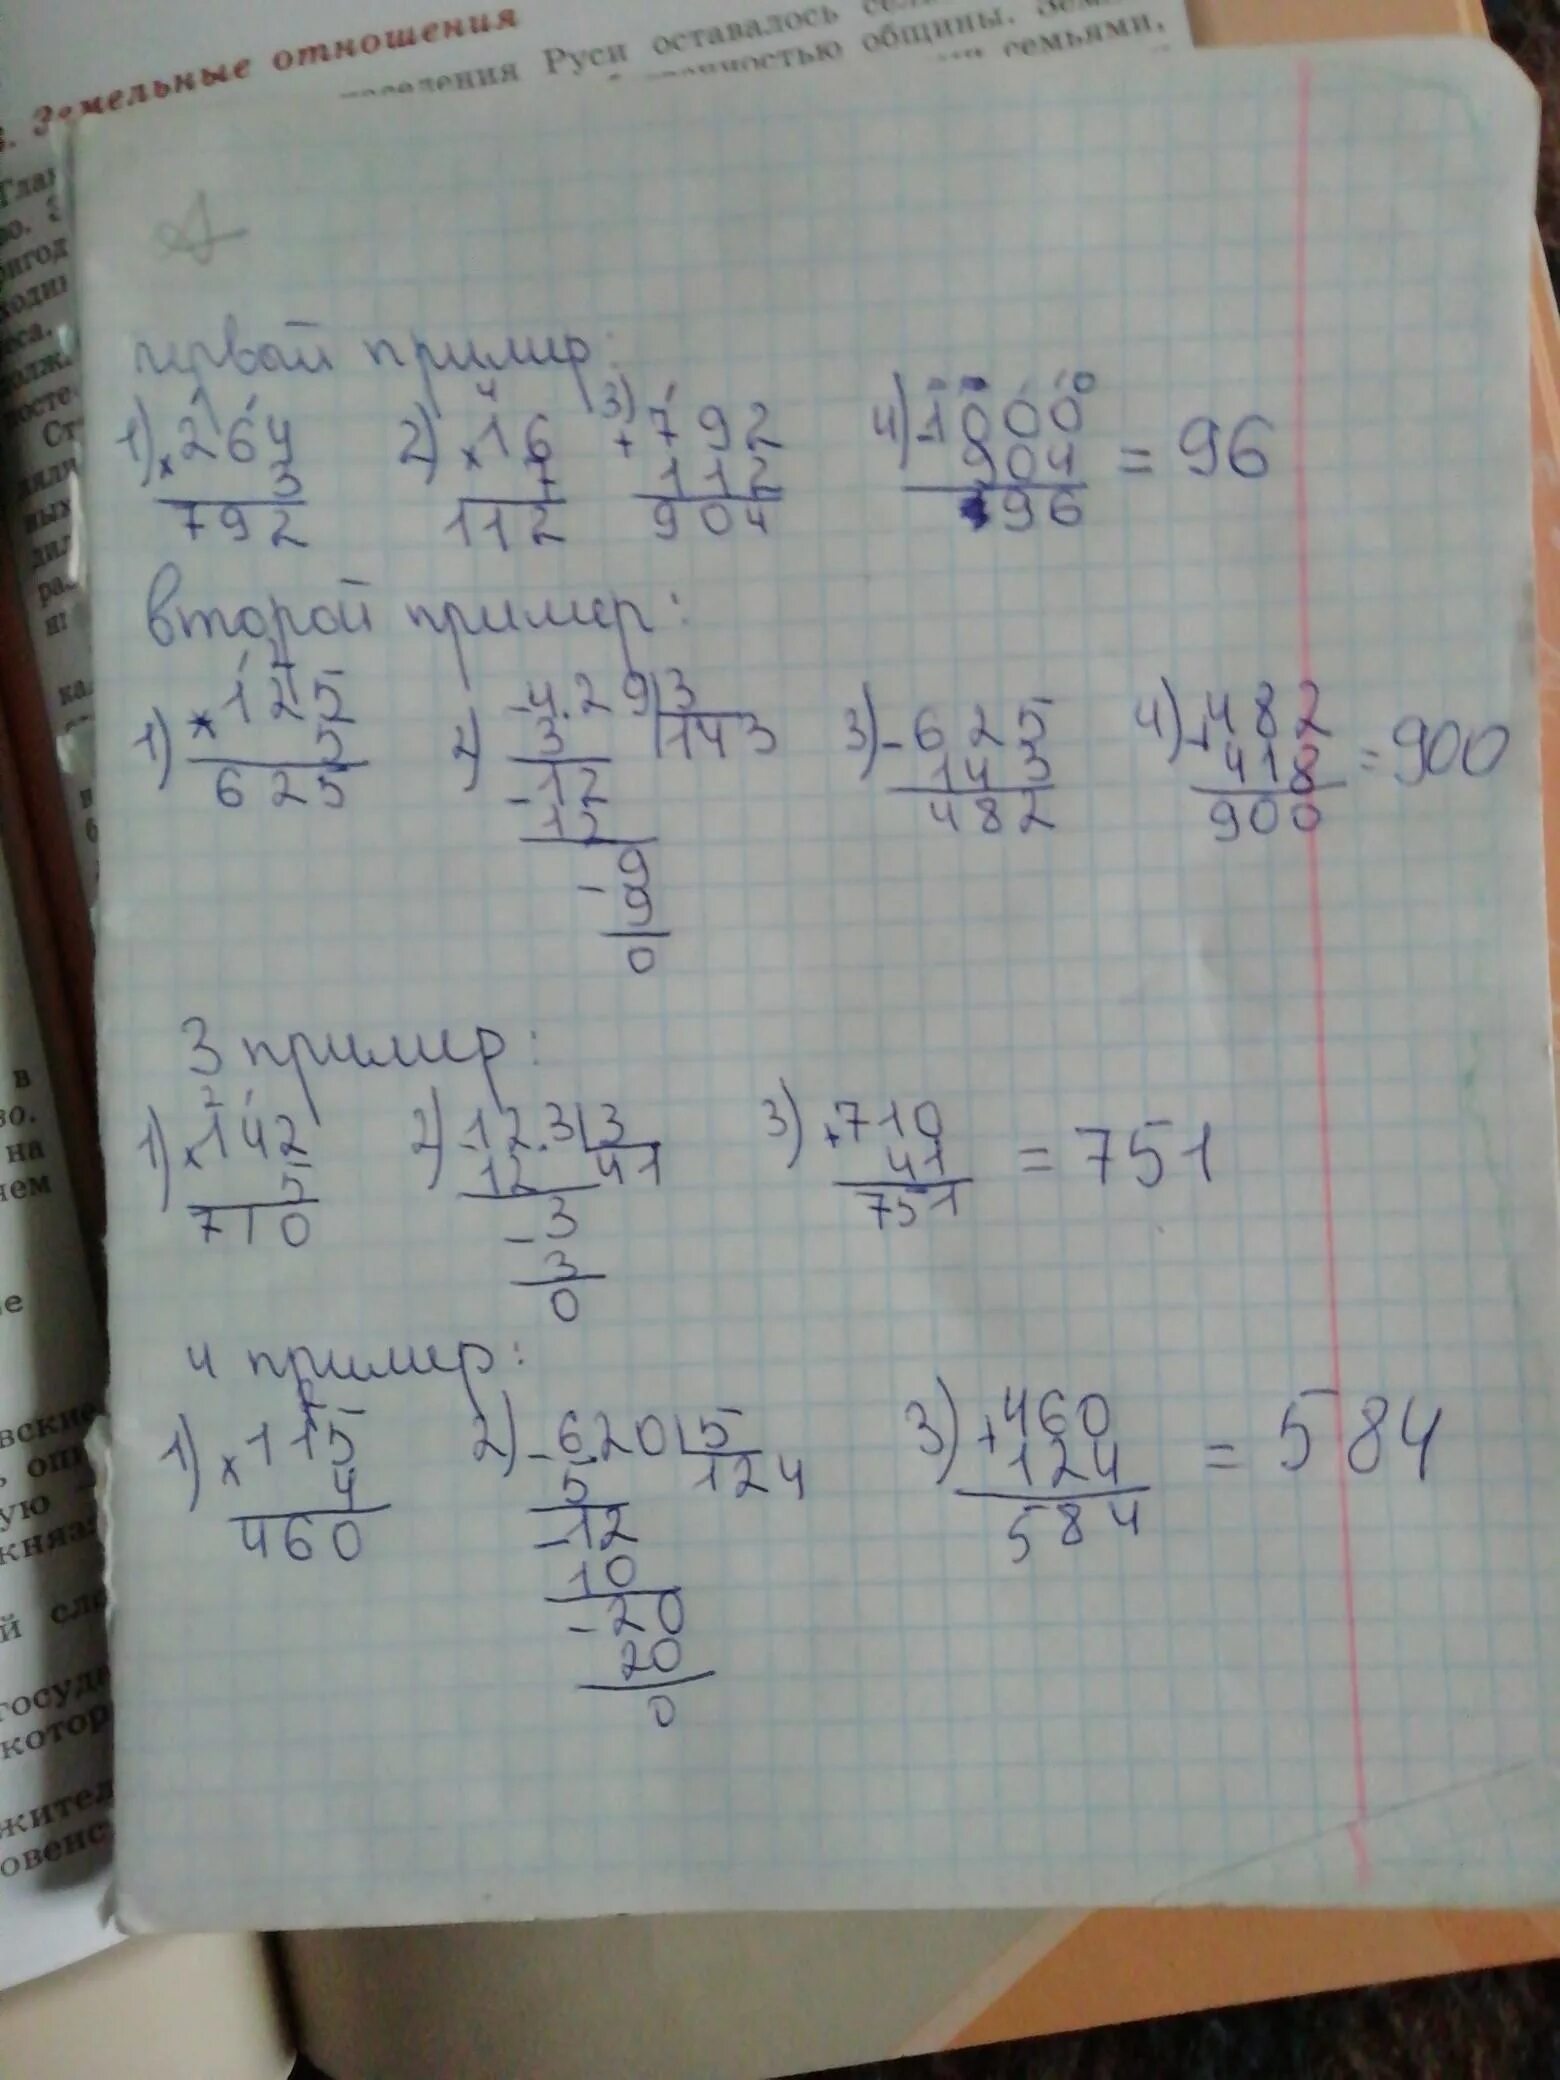 Земельные отношения
Руси оставалось
общины.
семьями,
первый пример:
1) × 264 2) × 16 3) + 792 4) - 1000
3 7 112 904 = 96
792 112 904 96
второй пример:
1) × 125 2) - 429 | 3 3) - 625 4) + 482
5 3 143 143 418 = 900
625 - 12 482 900
12
- 9
9
0
3 пример:
1) × 142 2) - 123 | 3 3) + 710
5 12 41 41 = 751
710 - 3 751
3
0
4 пример:
1) × 115 2) - 620 | 5 3) + 460
4 5 124 124 = 584
460 - 12 584
10
- 20
20
0